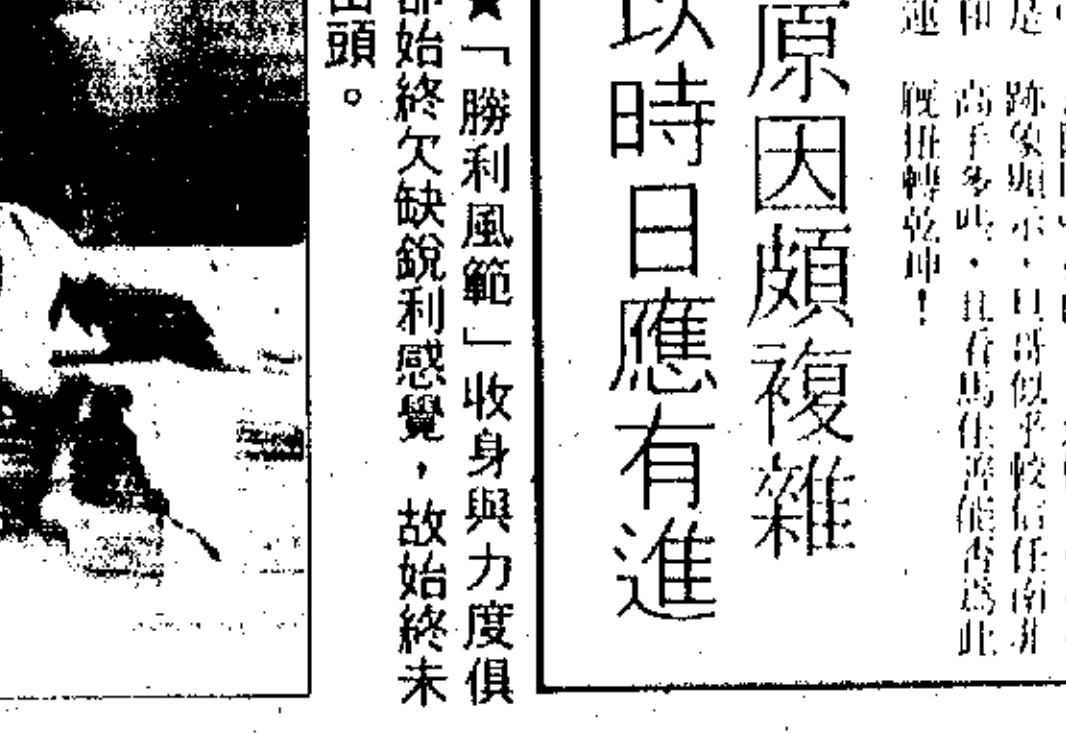 跡象顯示，旦哥似乎較信任南非
高手多些，且看馬仕善能否爲此
厩扭轉乾坤！
原因頗複雜
以時日應有進
★「勝利風範」收身與力度俱
始終欠缺銳利感覺，故始終未
出頭。